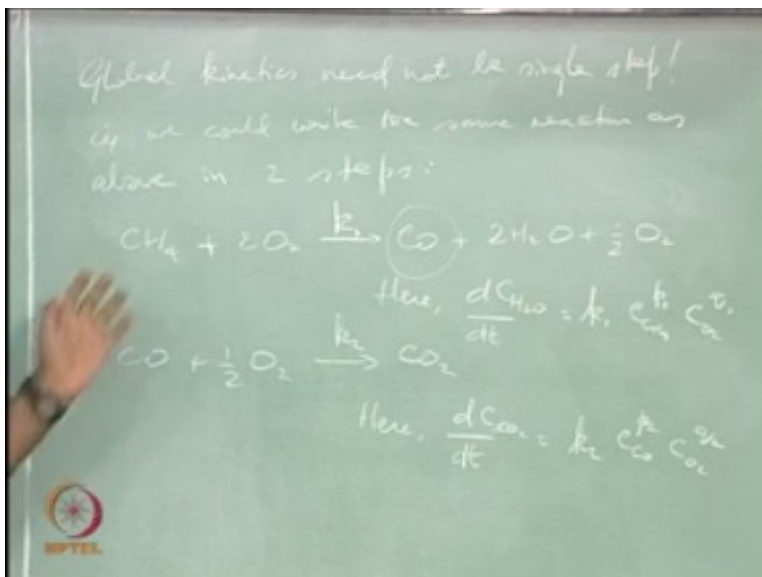 Global kinetics need not be single step!
ie, we could write the same reaction as
above in 2 steps:
CH₄ + 2O₂ —k₁→ CO + 2H₂O + ½ O₂
Here, dC_H₂O/dt = k₁ C_CH₄^p₁ C_O₂^q₁
CO + ½ O₂ —k₂→ CO₂
Here, dC_CO₂/dt = k₂ C_CO^p₂ C_O₂^q₂
NPTEL